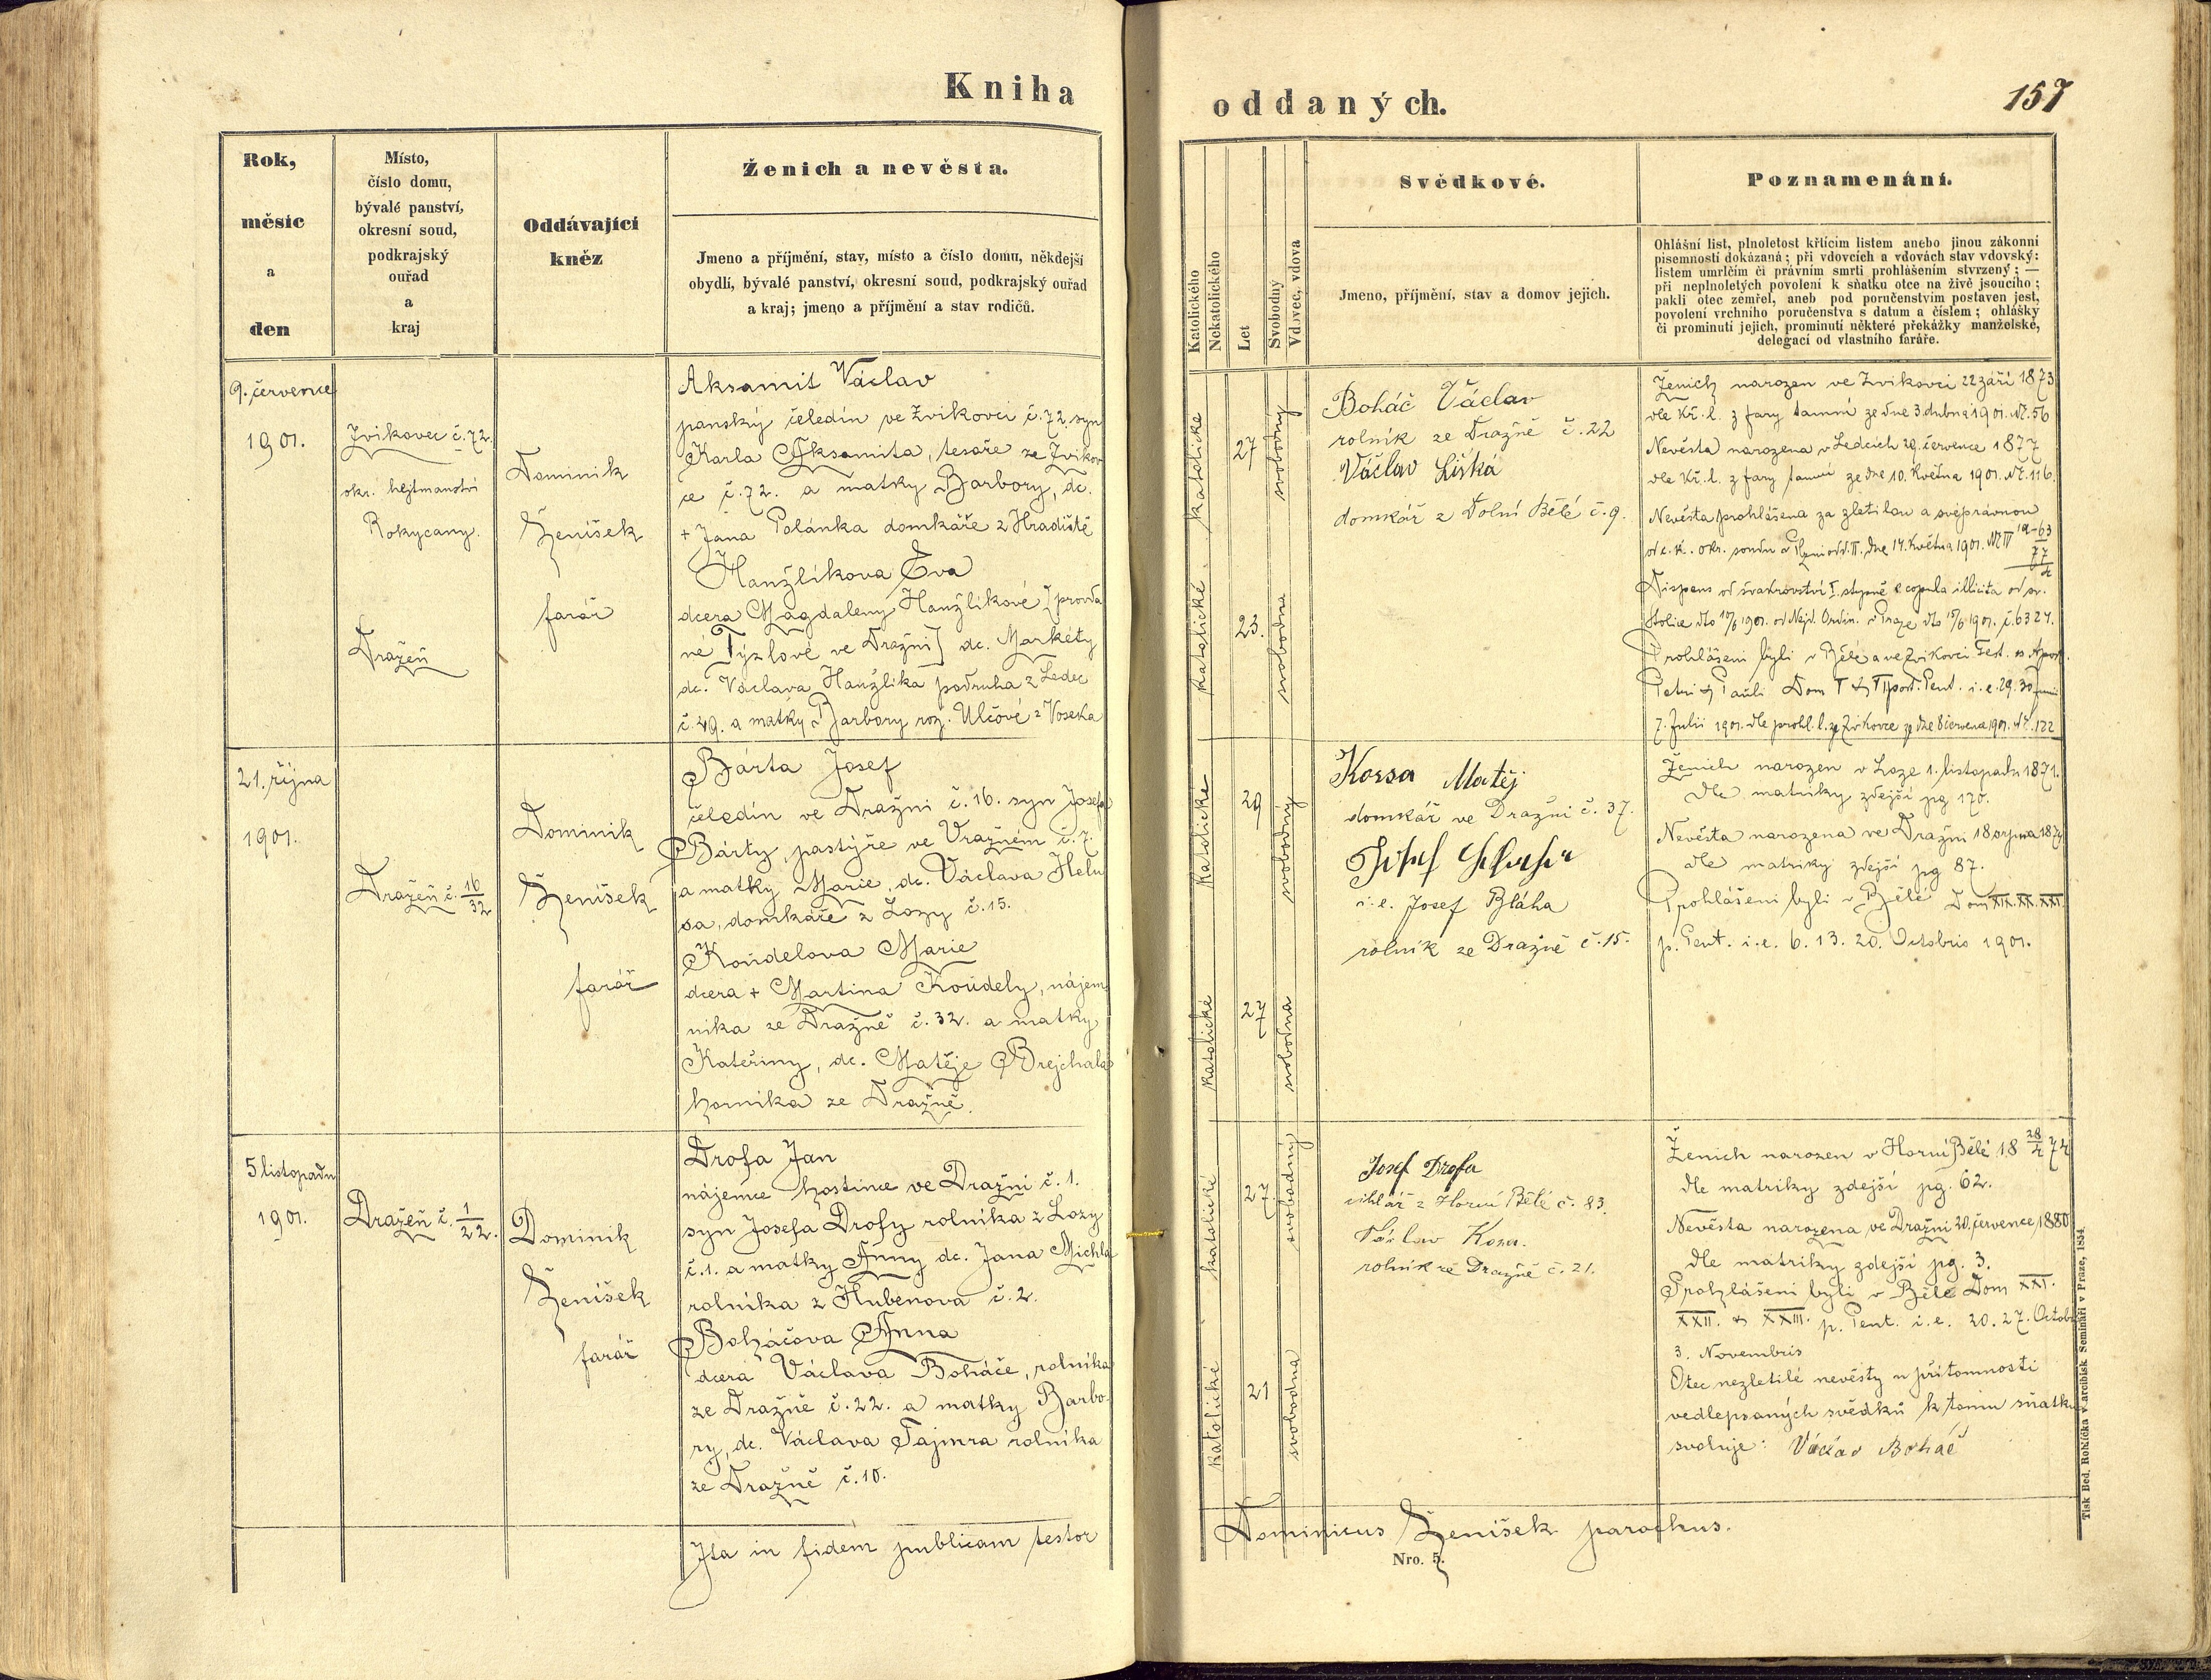 Kniha
Rok,
měsíc
a
den
Místo,
číslo domu,
bývalé panství,
okresní soud,
podkrajský
ouřad
a
kraj
Oddávající
kněz
Ženich a nevěsta.
Jmeno a příjmění, stav, místo a číslo domu, někdejší
obydlí, bývalé panství, okresní soud, podkrajský ouřad
a kraj; jmeno a příjmění a stav rodičů.
9. července
1901.
Zvíkovec č. 72.
okr. hejtmanství
Rokycany.
Dražeň
Dominik
Ženíšek
farář
Aksamit Václav
panský čeledín ve Zvíkovci č. 72, syn
Karla Aksamita, tesaře ze Zvíkov
ce č. 72. a matky Barbory, dc.
+ Jana Polánka domkáře z Hradiště
Hanžlíkova Eva
dcera Magdaleny Hanžlíkové [provda
né Týzlové ve Dražni] dc. Markéty
dc. Václava Hanžlíka podruha z Ledec
č. 49. a matky Barbory roz. Ulčové z Voseka
21. října
1901.
Dražeň č. 16/32
Dominik
Ženíšek
farář
Bárta Josef
čeledín ve Dražni č. 16. syn Josefa
Bárty, pastýře ve Vražném č. 7.
a matky Marie, dc. Václava Helu
sa, domkáře z Lozy č. 15.
Koudelova Marie
dcera + Martina Koudely, nájem
níka ze Dražně č. 32. a matky
Kateřiny, dc. Matěje Brejchala
horníka ze Dražně.
5 listopadu
1901.
Dražeň č. 1/22.
Dominik
Ženíšek
farář
Drofa Jan
nájemce hostince ve Dražni č. 1.
syn Josefa Drofy rolníka z Lozy
č. 1. a matky Anny dc. Jana Michla
rolníka z Hubenova č. 2.
Boháčova Anna
dcera Václava Boháče, rolníka
ze Dražně č. 22. a matky Barbo-
ry, dc. Václava Tajmra rolníka
ze Dražně č. 10.
Ita in fidem publicam testor
oddaných.
157
Katolického
Nekatolického
Let
Svobodný
Vdovec, vdova
Svědkové.
Jmeno, příjmění, stav a domov jejich.
Poznamenání.
Ohlášní list, plnoletost křtícím listem anebo jinou zákonní
písemností dokázaná; při vdovcích a vdovách stav vdovský:
listem umrlčím či právním smrti prohlášením stvrzený; —
při neplnoletých povolení k sňatku otce na živě jsoucího;
pakli otec zemřel, aneb pod poručenstvím postaven jest,
povolení vrchního poručenstva s datum a číslem; ohlášky
či prominutí jejich, prominutí některé překážky manželské,
delegací od vlastního faráře.
katolické
27
svobodný
katolické
23.
svobodna
Boháč Václav
rolník ze Dražně č. 22
Václav Liška
domkář z Dolní Bělé č. 9.
Ženich narozen ve Zvíkovci 22 září 1873
dle Kř. l. z fary tamní ze dne 3. dubna 1901. Nč. 56
Nevěsta narozena v Ledcích 29. července 1877
dle Kř. l. z fary tamní ze dne 10. Května 1901. Nč. 116.
Nevěsta prohlášena za zletilou a svéprávnou
od c. k. okr. soudu v Plzni odd. II. dne 14. Května 1901.
Dispens od švakrovství I. stupně e copula illicita od sv.
Stolice dto 1901. od Nejd. Ordin. v Praze dto 1901. č. 6324.
Prohlášeni byli v Bělé a ve Zvíkovci Fest. ss. Apost.
Petri & Pauli Dom V & VI post. Pent. i. e. 29. 30. Juni
7. Julii 1901. dle prohl. l. ze Zvíkovce ze dne 8 července 1901. Nč. 122
katolické
29
svobodný
katolické
27
svobodna
Kossa Matěj
domkář ve Dražni č. 37.
i. e. Josef Bláha
rolník ze Dražně č. 15.
Ženich narozen v Loze 1. listopadu 1871.
dle matriky zdejší pg 170.
Nevěsta narozena ve Dražni 18 srpna 1874
dle matriky zdejší pg 87.
Prohlášeni byli v Bělé Dom XIX. XX. XXI.
p. Pent. i. e. 6. 13. 20. Octobris 1901.
katolické
27.
svobodný
katolické
21
svobodna
Josef Drofa
z Horní Bělé č. 83.
Václav Kosa.
rolník ze Dražně č. 21.
Ženich narozen v Horní Bělé 18 28/4 74
dle matriky zdejší pg. 62.
Nevěsta narozena ve Dražni 20. července 1880
dle matriky zdejší pg. 3.
Prohlášeni byli v Bělé Dom XXI.
XXII. & XXIII. p. Pent. i. e. 20. 27. Octob
3. Novembris
Otec nezletilé nevěsty u přítomnosti
vedlepsaných svědků k tomu sňatku
svoluje: Václav Boháč
Dominicus Ženíšek parochus.
Nro. 5.
Tisk Bed. Rohlíčka v arcibisk. Semináři v Praze, 1854.